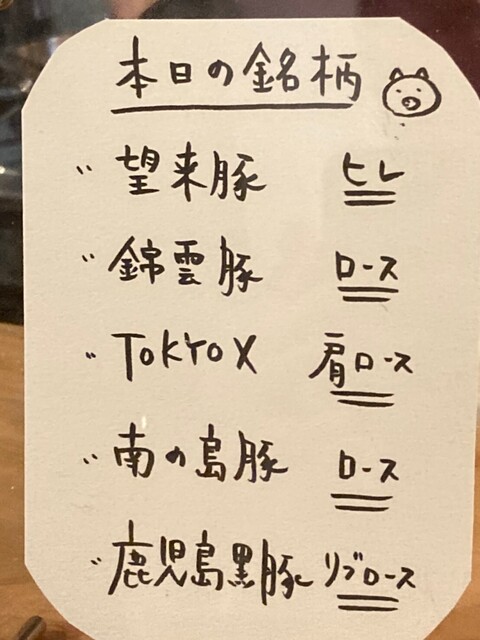 本日の銘柄
〃 望来豚 ヒレ
〃 錦雲豚 ロース
〃 TOKYO X 肩ロース
〃 南の島豚 ロース
〃 鹿児島黒豚 リブロース